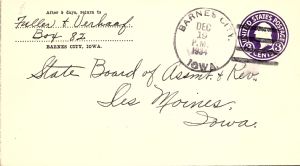 After 5 days, return to
Fuller & Verhaaf
Box 82
BARNES CITY, IOWA.
BARNES CITY,
DEC
19
P.M.
1934
IOWA.
UNITED STATES POSTAGE
3 CENTS 3
State Board of Assmt. & Rev.
Des Moines,
Iowa.